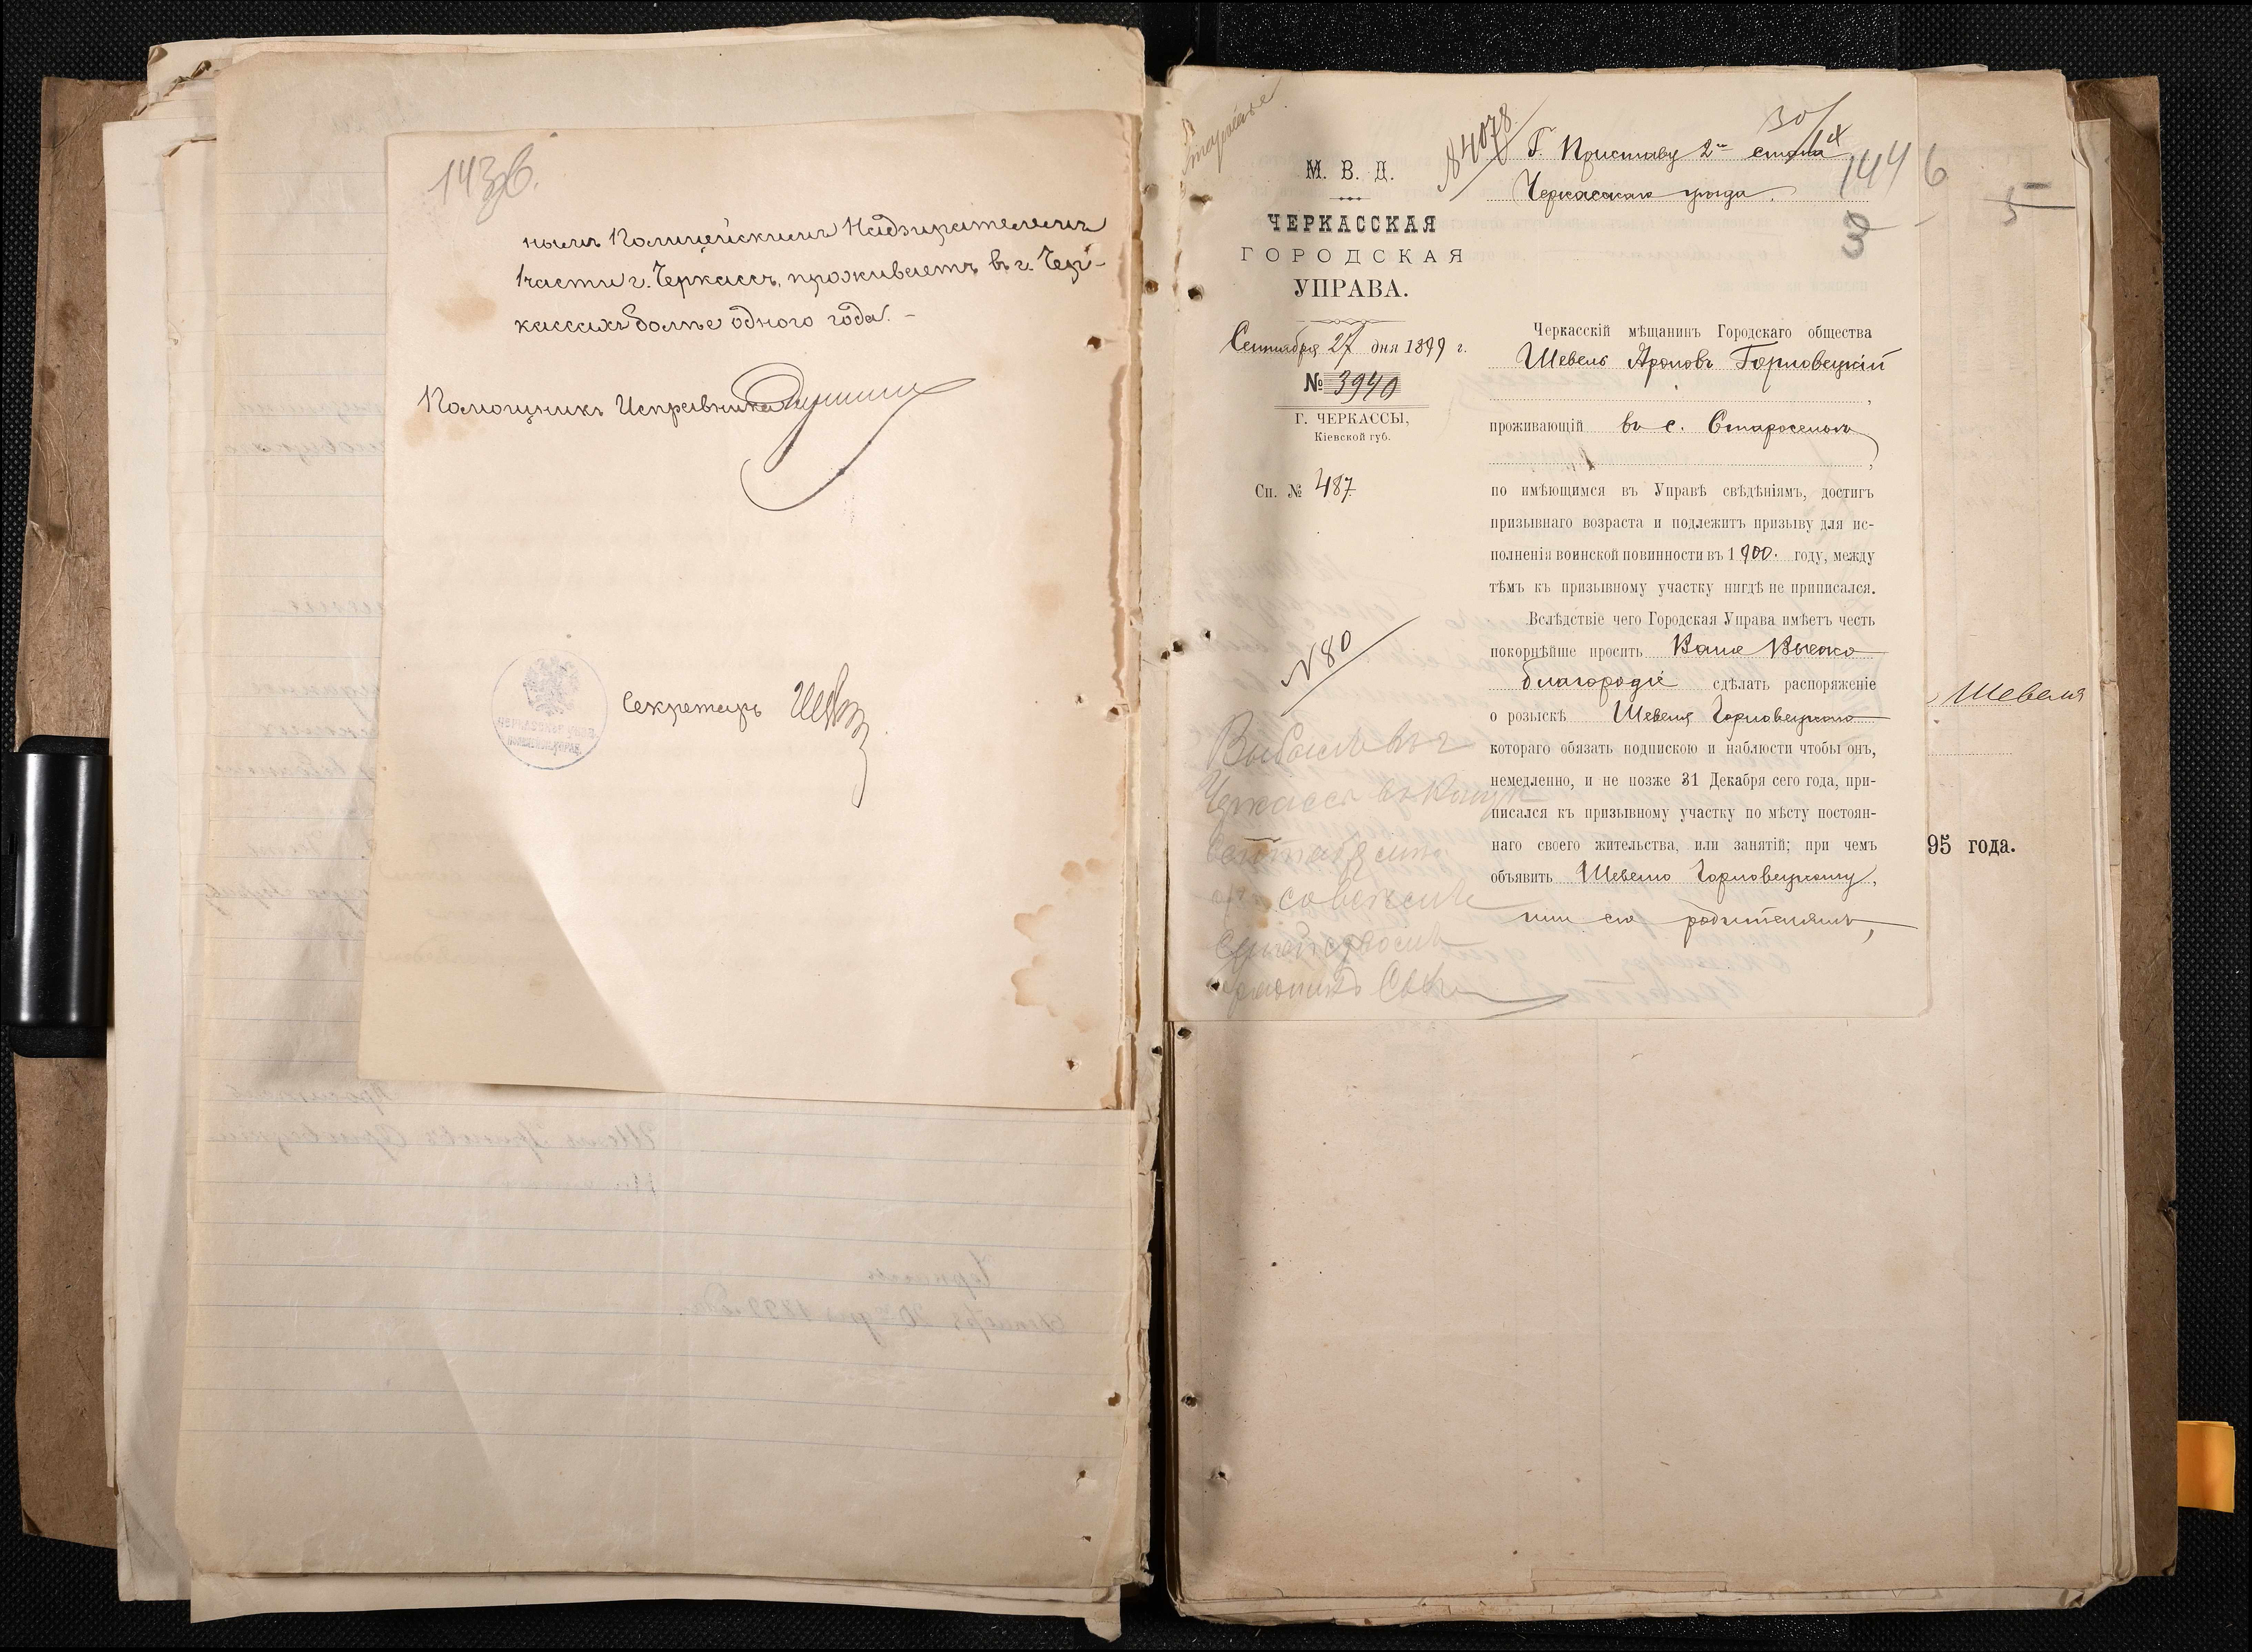 143об.
нымъ Полицейскимъ Надзирателемъ
1 части г. Черкассъ, проживаетъ въ г. Чер-
кассахъ болѣе одного года. –
Помощникъ Исправника
Секретарь
№ 4078
30/IX
Г. Приставу 2го стана
Черкасскаго уѣзда.
144
6
3
5
М. В. Д.
ЧЕРКАССКАЯ
ГОРОДСКАЯ
УПРАВА.
Сентября 27 дня 1899 г.
№ 3940
Г. ЧЕРКАССЫ,
Кіевской губ.
Сп. № 487.
№ 80
Черкасскій мѣщанинъ Городскаго общества
Шевель Ароновъ Горловецкій
,
проживающій въ с. Староселье
,
по имѣющимся въ Управѣ свѣдѣніямъ, достигъ
призывнаго возраста и подлежитъ призыву для ис-
полненія воинской повинности въ 1900. году, между
тѣмъ къ призывному участку нигдѣ не приписался.
Вслѣдствіе чего Городская Управа имѣетъ честь
покорнѣйше просить Ваше Высоко
благородіе сдѣлать распоряженіе
о розыскѣ Шевеля Горловецкаго
котораго обязать подпискою и наблюсти чтобы онъ,
немедленно, и не позже 31 Декабря сего года, при-
писался къ призывному участку по мѣсту постоян-
наго своего жительства, или занятій; при чемъ
объявить Шевелю Горловецкому,
или его родителямъ,
Выбылъ въ г
Черкассы
Шевеля
95 года.